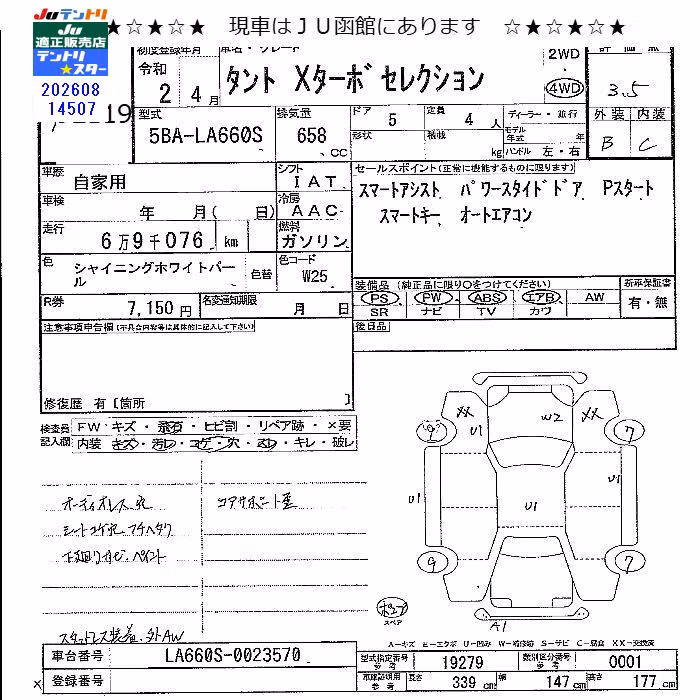 Juテントリ
Ju
適正販売店
テントリ
★スター
★☆★☆★ 現車はＪＵ函館にあります ☆★☆★☆★
202608
14507
19
初度登録年月
令和 2年 4月
車名・グレード
タント Xターボ セレクション
2WD
・
4WD
評価
3.5
外装 内装
B C
型式
5BA-LA660S
排気量
658 .CC
ドア
5
定員
4 人
ディーラー・並行
形状
積載
kg
モデル年式
年
ハンドル 左・右
車歴
自家用
シフト
IAT
セールスポイント(正常に機能するものに限ります)
スマートアシスト パワースライドドア Pスタート
スマートキー オートエアコン
車検
年 月( 日)
冷房
AAC
走行
6万9千076 km
燃料
ガソリン
色
シャイニングホワイトパール
色替
色コード
W25
装備品(純正品に限り○をつけてください)
PS PW ABS エアB AW
SR ナビ TV カワ
新車保証書
有・無
R券
7,150円
名変通知期限
月 日
後日品
注意事項申告欄(不具合内容等は具体的に記入して下さい)
修復歴 有〔箇所 〕
検査員記入欄
FW キズ・飛石・ヒビ割・リペア跡・×要
内装 キズ・汚レ・コゲ・穴・スレ・キレ・破レ
オーディオレス穴
コアサポート歪
シートコゲ穴、フチヘタリ
下廻りサビ・ペイント
スタットレス装着、外AW
XX U1 W2 XX
9 7
U1 U1 U1
9 7
A1
スペア
A-キズ E-エクボ U-凹み W-補修跡 S-サビ C-腐食 XX-交換済
車台番号
LA660S-0023570
型式指定番号
参考
19279
類別区分番号
参考
0001
登録番号
車庫証明用
参考
長さ
339 cm
幅
147 cm
高さ
177 cm